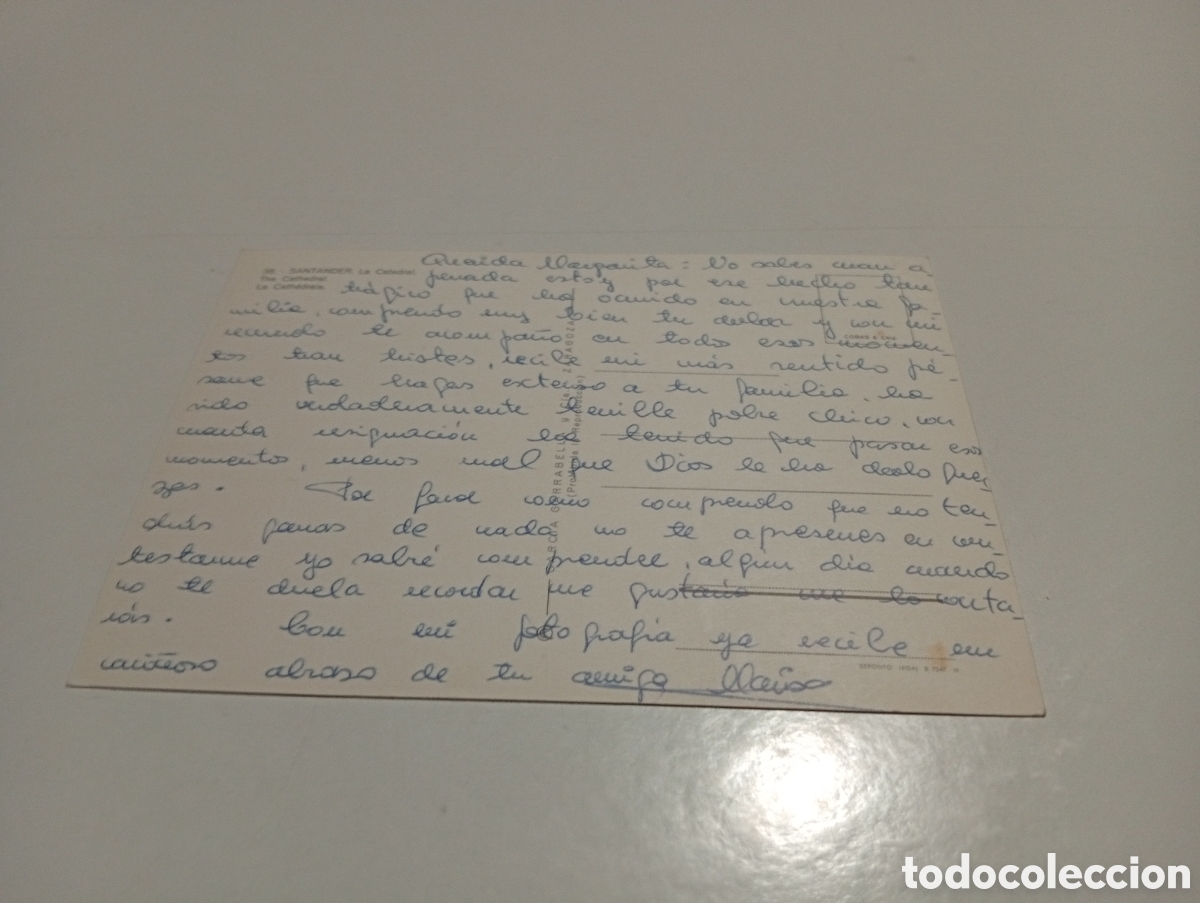 58 - SANTANDER. La Catedral.
The Cathedral.
La Cathédrale.
Querida Margarita: No sabes cuan a-
penada estoy por ese hecho tan
trágico que ha ocurido en nuestra fa-
milia, comprendo muy bien tu dolor y con mi
recuerdo te acompaño en todo esos momen-
tos tran tristes, recibe mi más sentido pé-
same que hagas extenso a tu familia, ha
sido verdaderamente terrible pobre chico, con
cuanta resignación ha tenido que pasar esos
momentos, menos mal que Dios le ha dado fuer-
zas. Por favor como comprendo que no ten-
dráis ganas de nada no te apresures en con-
testarme yo sabré comprender, algún día cuando
no te duela recordar me
rás. Con mi fotografía ya recibe un
cariñoso abrazo de tu amiga
V.ª Cía - ZARAGOZA
DEPOSITO LEGAL B.
todocoleccion